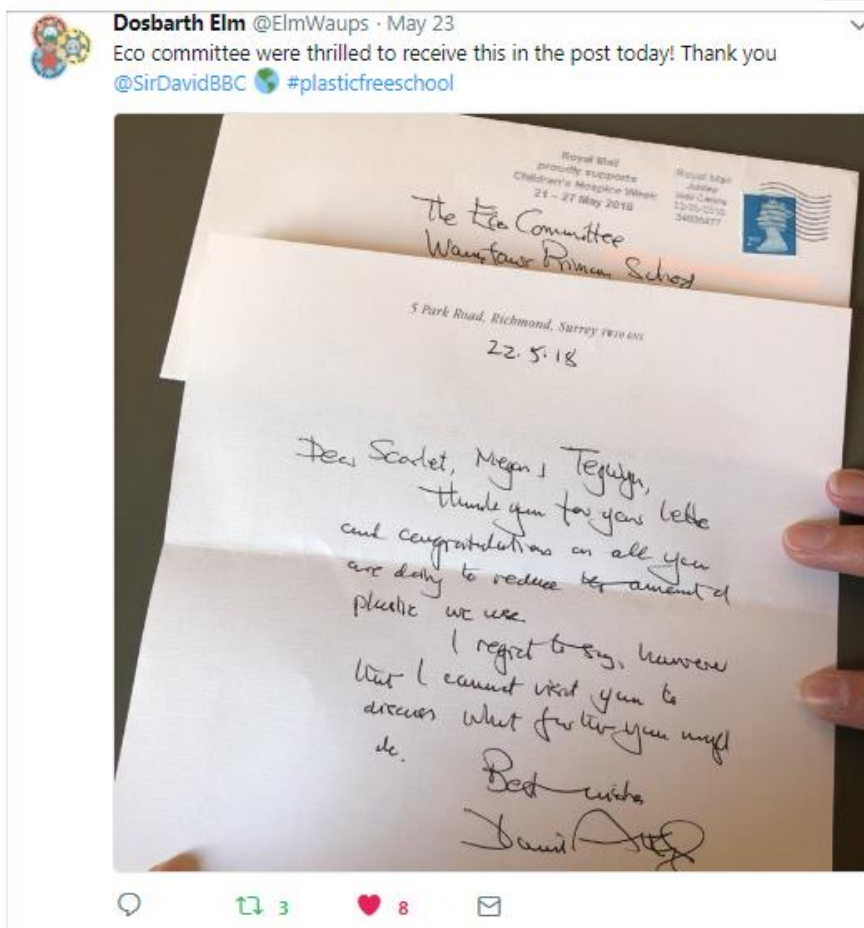 Dosbarth Elm @ElmWaups · May 23
Eco committee were thrilled to receive this in the post today! Thank you
@SirDavidBBC #plasticfreeschool
Royal Mail
proudly supports
Children's Hospice Week
21 – 27 May 2018
Royal Mail
The Eco Committee
Primary School
2nd
5 Park Road, Richmond, Surrey
22.5.18
Dear Scarlet, Megan, Tegwyn,
Thank you for your letter
and congratulations on all you
are doing to reduce the amount of
plastic we use.
I regret to say, however
that I cannot visit you to
discuss what further you might
do.
Best wishes
David
3 8